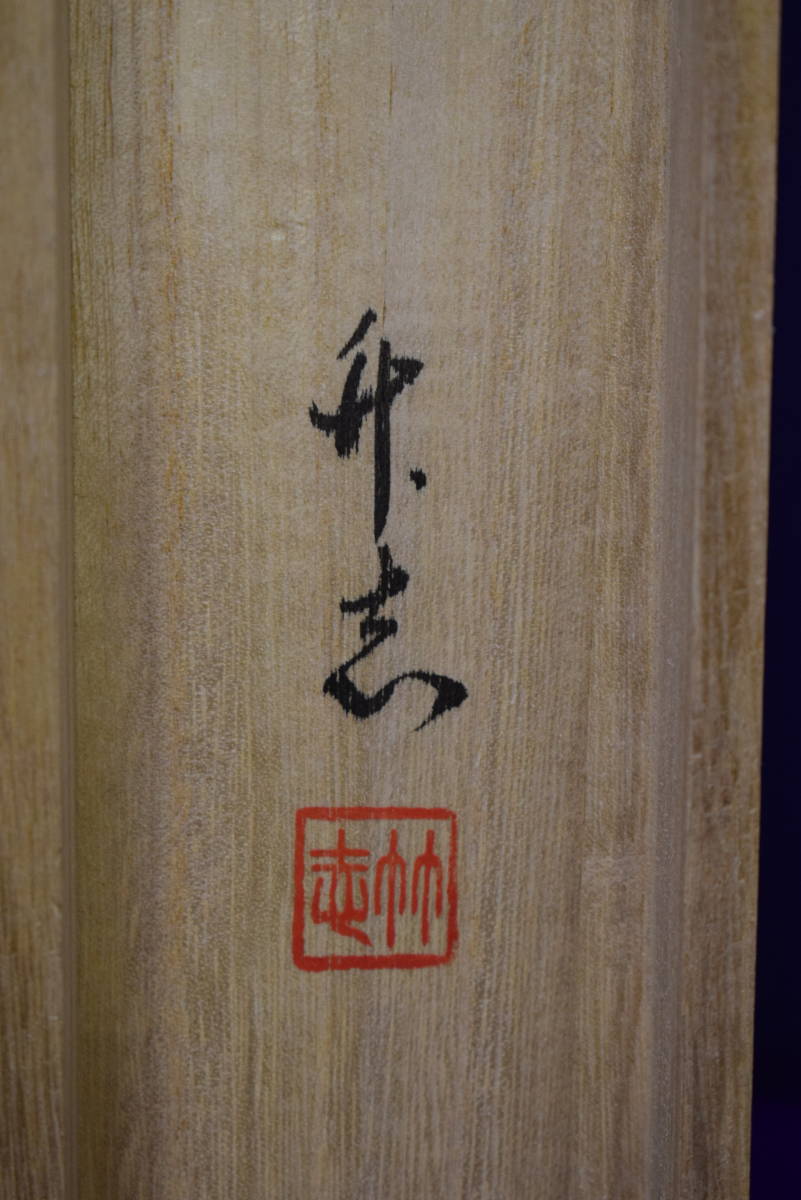 竹志
竹志